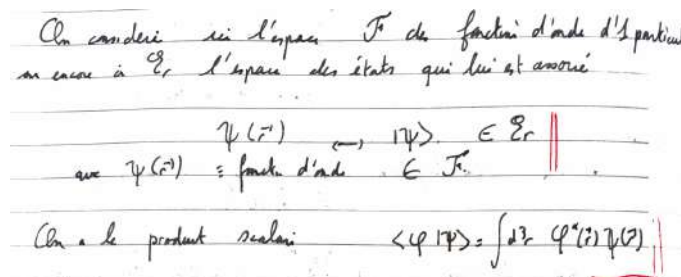 On considère ici l'espace F des fonctions d'onde d'1 particul
ou encore à Ɛr l'espace des états qui lui est associé
ψ(r⃗) ⟷ |ψ⟩ ∈ Ɛr
avec ψ(r⃗) ≡ fonct. d'onde ∈ F.
On a le produit scalaire <φ|ψ> = ∫d³r φ*(r⃗) ψ(r⃗)